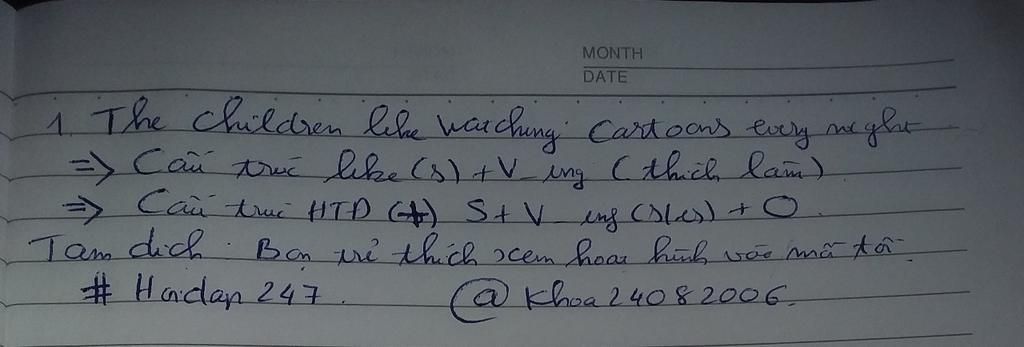 MONTH
DATE
1. The children like watching cartoons every night
=> Cấu trúc like(s) + V_ing (thích làm)
=> Cấu trúc HTD (+) S + V_ing (s/es) + O.
Tạm dịch: Bọn trẻ thích xem hoạt hình vào mỗi tối
# Hoidap 247. @Khoa24082006.